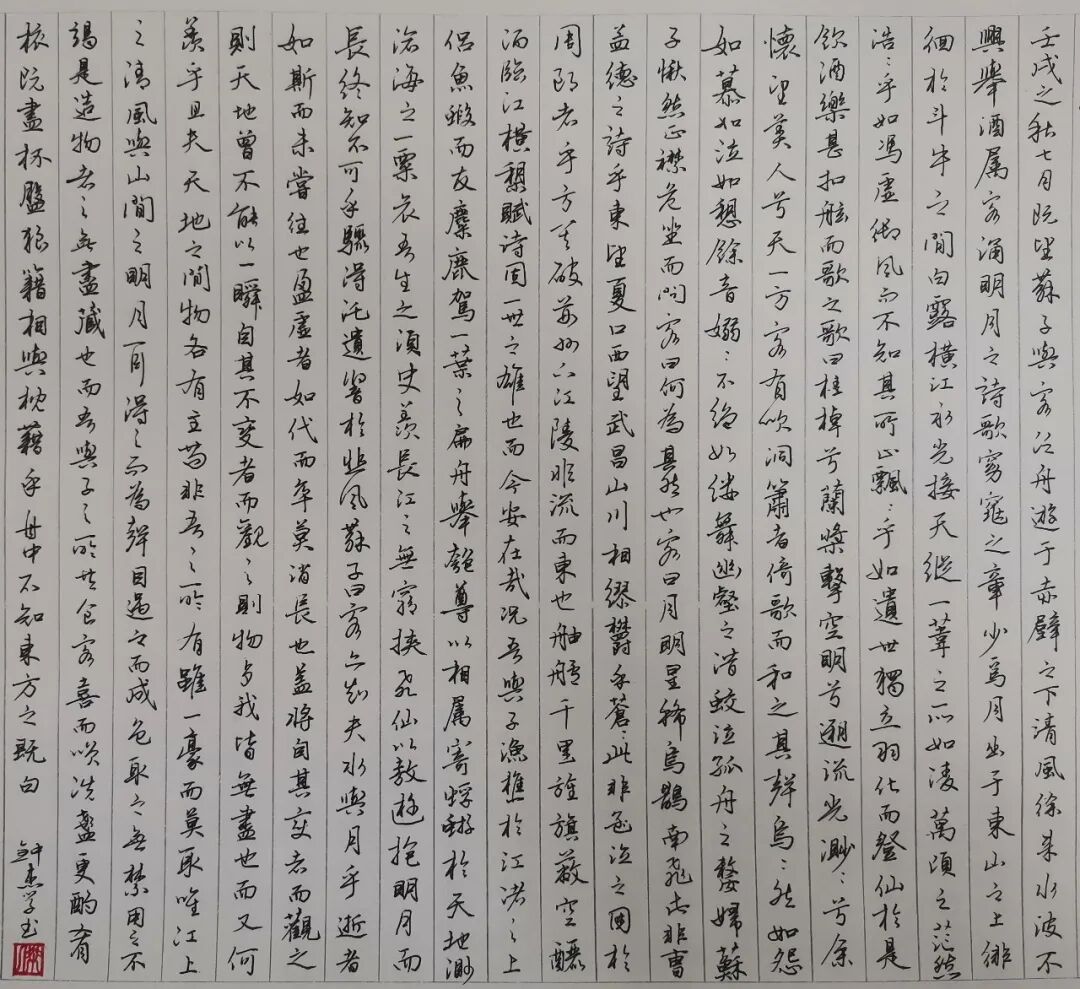 壬戌之秋七月既望蘇子與客泛舟遊于赤壁之下清風徐来水波不
興舉酒属客誦明月之詩歌窈窕之章少焉月出于東山之上徘
徊於斗牛之間白露橫江水光接天縱一葦之所如凌萬頃之茫然
浩〻乎如馮虚御風而不知其所止飄〻乎如遺世獨立羽化而登仙於是
飲酒樂甚扣舷而歌之歌曰桂棹兮蘭槳擊空明兮遡流光渺〻兮余
懷望美人兮天一方客有吹洞簫者倚歌而和之其聲烏〻然如怨
如慕如泣如愬餘音嫋〻不绝如缕舞幽壑之潜蛟泣孤舟之嫠婦蘇
子愀然正襟危坐而問客曰何為其然也客曰月明星稀烏鵲南飛此非曹
孟德之詩乎東望夏口西望武昌山川相繆鬱乎蒼〻此非孟德之困於
周郎者乎方其破荊州下江陵順流而東也舳艫千里旌旗蔽空釃
酒臨江橫槊賦詩固一世之雄也而今安在哉況吾與子漁樵於江渚之上
侶魚蝦而友麋鹿駕一葉之扁舟舉匏尊以相属寄蜉蝣於天地渺
滄海之一粟哀吾生之須臾羨長江之無窮挾飛仙以遨遊抱明月而
長終知不可乎驟得託遺響於悲風蘇子曰客亦知夫水與月乎逝者
如斯而未嘗往也盈虚者如代而卒莫消長也盖將自其变者而觀之
則天地曾不能以一瞬自其不变者而觀之則物与我皆無盡也而又何
羨乎且夫天地之間物各有主苟非吾〻之所有雖一豪而莫取唯江上
之清風與山間之明月耳得之而為聲目遇之而成色取之無禁用之不
竭是造物者之無盡藏也而吾與子之所共食客喜而笑洗盞更酌肴
核既盡杯盤狼籍相與枕藉乎舟中不知東方之既白 鍾杰学书